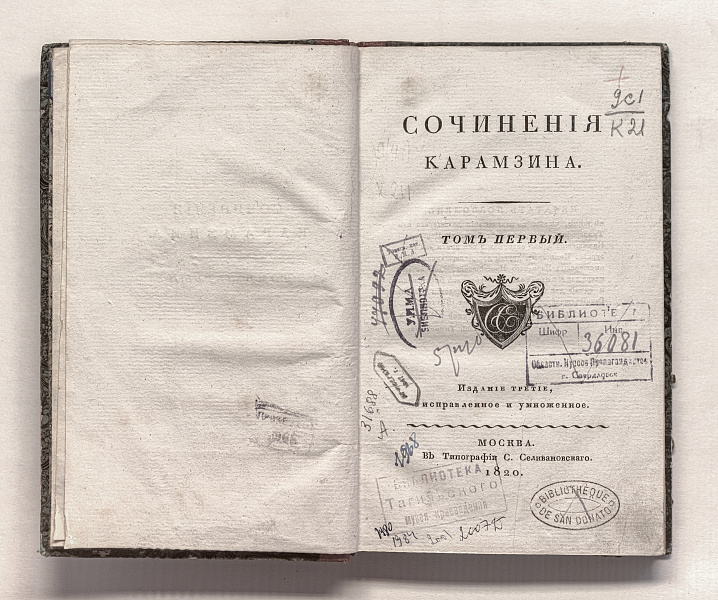 9с1
К21
СОЧИНЕНІЯ
КАРАМЗИНА.
ТОМЪ ПЕРВЫЙ.
БИБЛИОТЕ
Шифр Инв.
36081
Областн. Курсов Пропагандистов
г. Свердловск
Изданіе третіе,
исправленное и умноженное.
31688
МОСКВА.
Въ Типографіи С. Селивановскаго.
1820.
БИБЛИОТЕКА
Тагильского
музея Краеведения
BIBLIOTHÈQUE
DE SAN DONATO